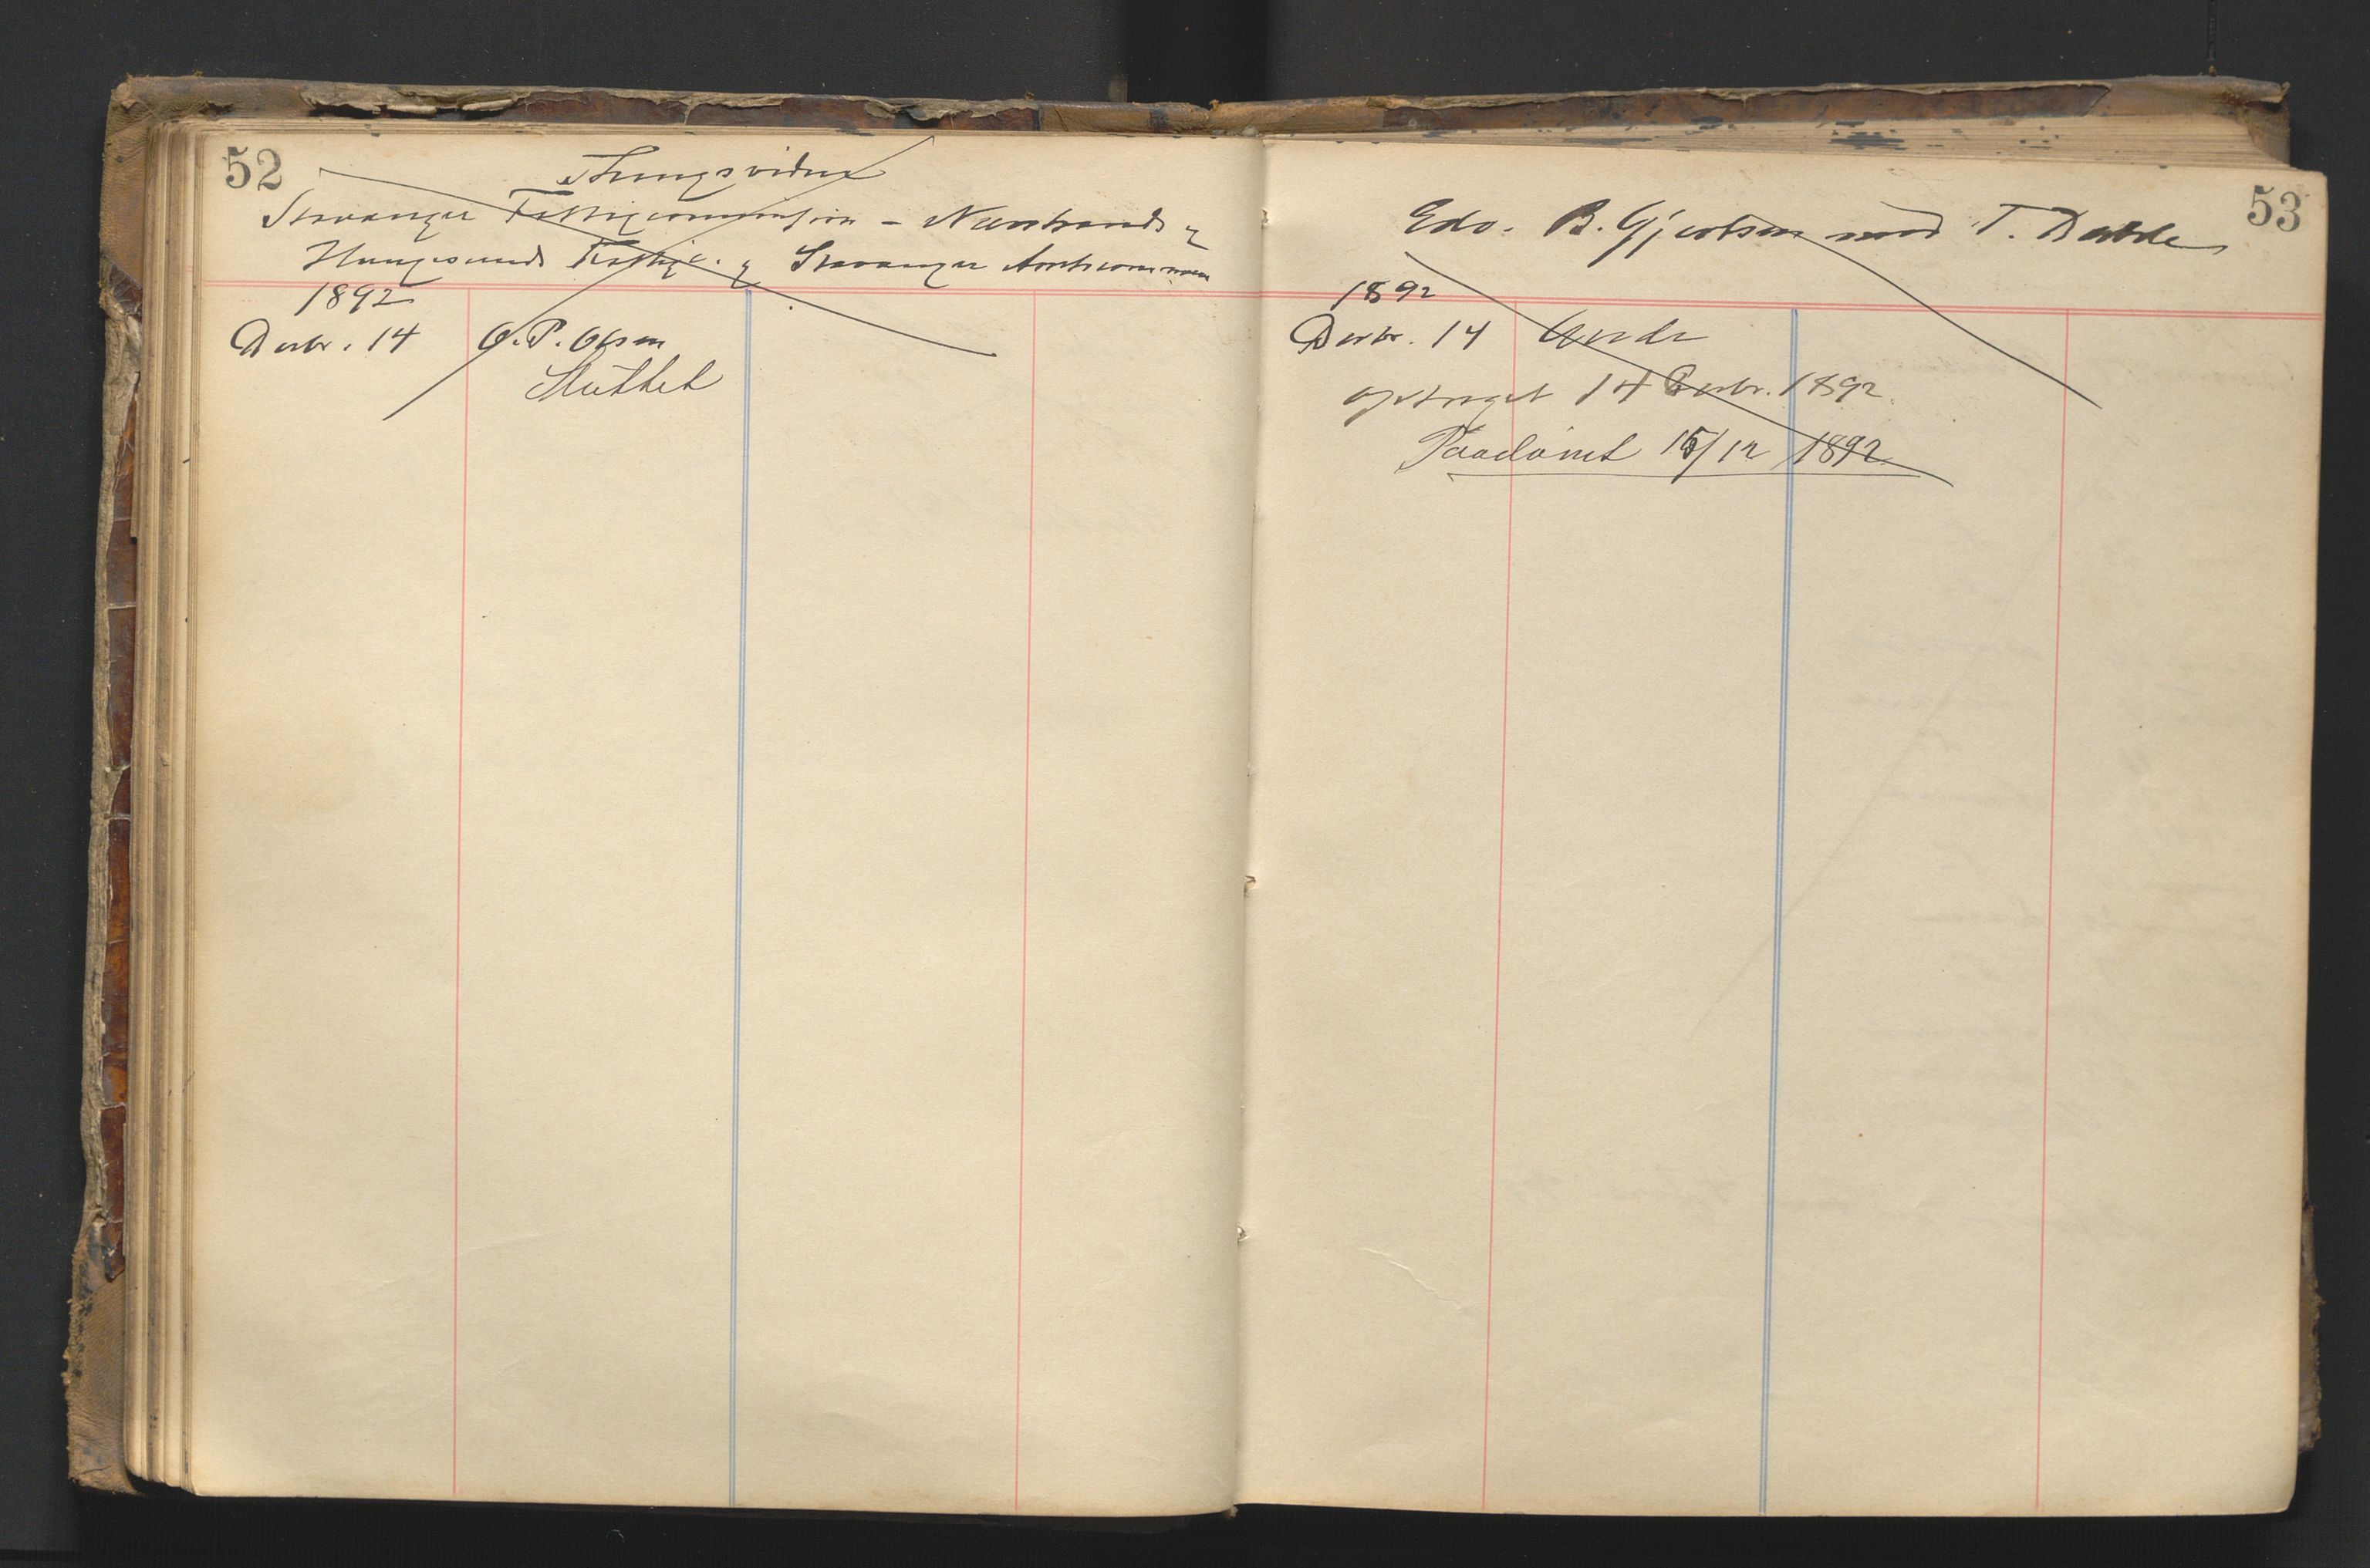 52
Thingsvidne
Stavanger Fattigcommission - Nærstrands &
Haugesunds Fattigc. & Stavanger Amtscommune
1892
Decbr. 14 O. P. Olsen
Sluttet
53
Edv. B. Gjertsen mod T. Dahle
1892
Decbr. 14
optaget 14 Decbr. 1892.
Paadömt 15/12 1892